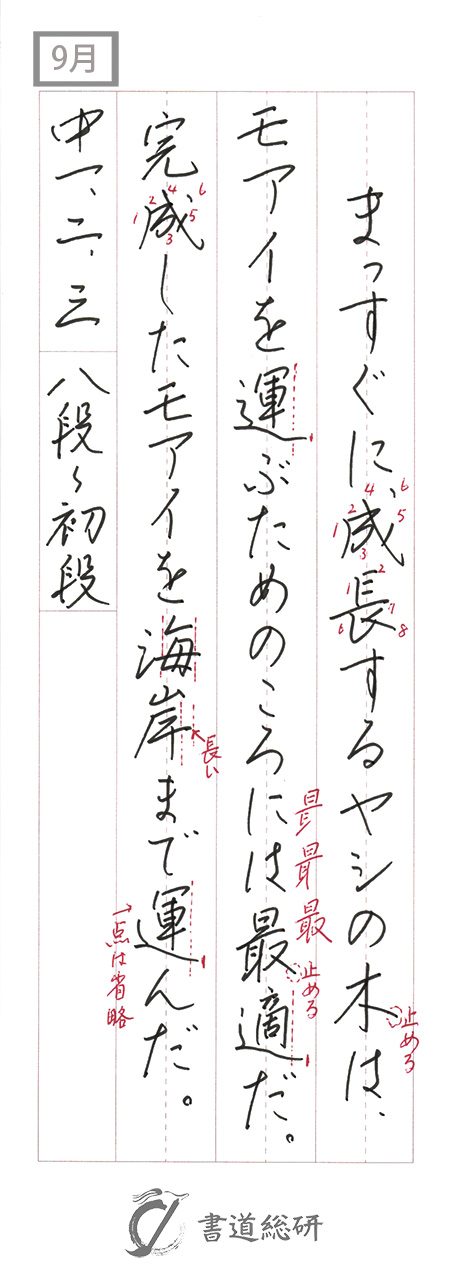 9月
まっすぐに成長するヤシの木は、
1 2 3 4 5 6
1 2 6 7 8
止める
モアイを運ぶためのころには最適だ。
最
止める
完成したモアイを海岸まで運んだ。
1 2 3 4 5 6
長い
→点は省略
中一、二、三 八段〜初段
書道総研